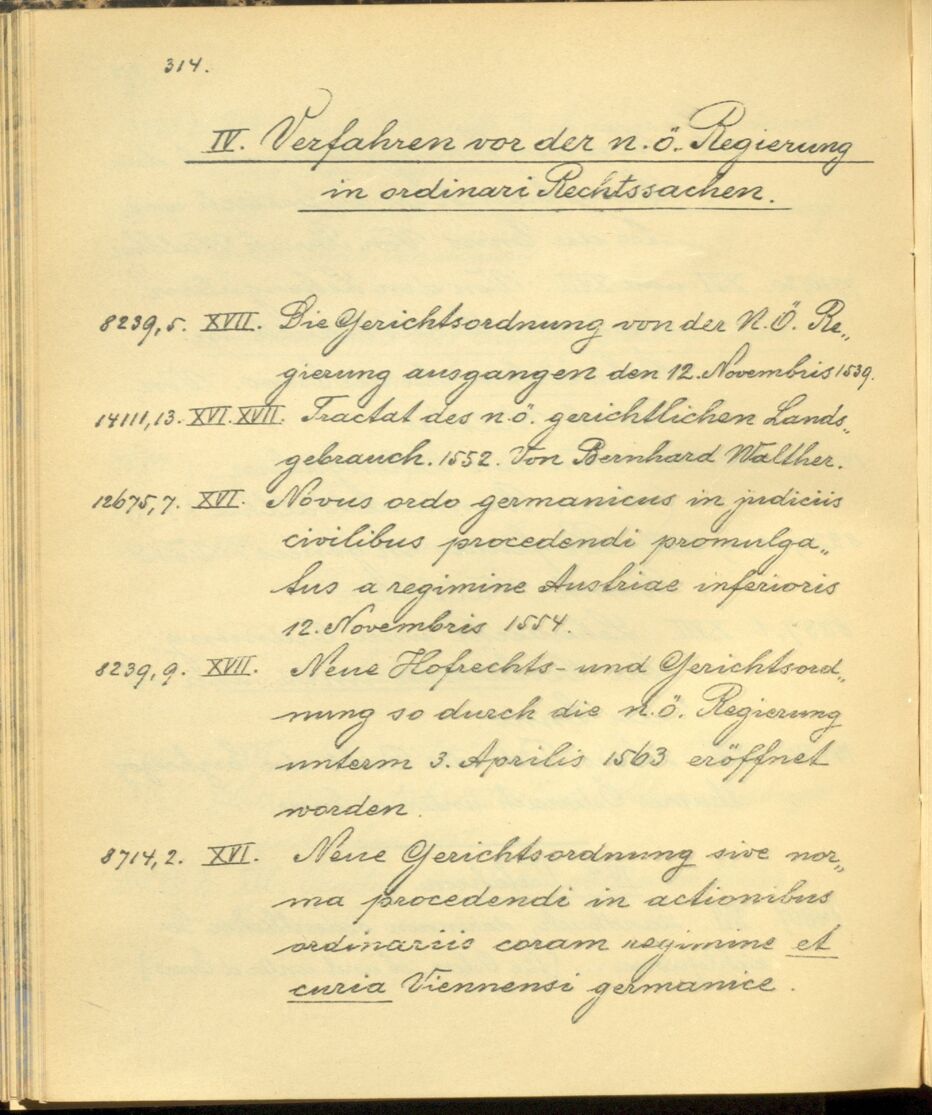 314.
IV. Verfahren vor der n.ö. Regierung
in ordinari Rechtssachen.
8239,5. XVII. Die Gerichtsordnung von der N.Ö. Re„
gierung ausgangen den 12. Novembris 1539.
14111,13. XVI. XVII. Tractat des n.ö. gerichtlichen Lands„
gebrauch. 1552. Von Bernhard Walther.
12675,7. XVI. Novus ordo germanicus in judiciis
civilibus procedendi promulga„
tus a regimine Austriae inferioris
12. Novembris 1554.
8239,9. XVII. Neue Hofrechts- und Gerichtsord„
nung so durch die n.ö. Regierung
unterm 3. Aprilis 1563 eröffnet
worden.
8714,2. XVI. Neue Gerichtsordnung sive nor„
ma procedendi in actionibus
ordinariis coram regimine et
curia Viennensi germanice.